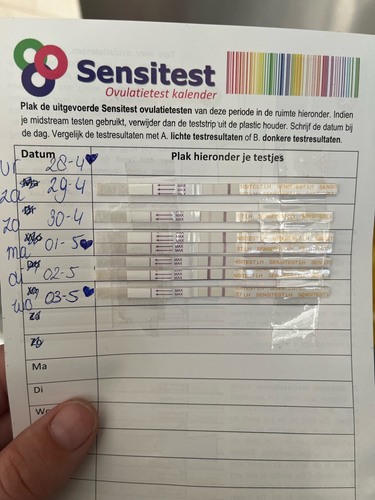 Sensitest
Ovulatietest kalender
Plak de uitgevoerde Sensitest ovulatietesten van deze periode in de ruimte hieronder. Indien
je midstream testen gebruikt, verwijder dan de teststrip uit de plastic houder. Schrijf de datum bij
de dag. Vergelijk de testresultaten met A. lichte testresultaten of B. donkere testresultaten.
Datum Plak hieronder je testjes
vr 28-4
za 29-4
zo 30-4
ma 01-5
di 02-5
wo 03-5
Za
Zo
Ma
Di
Wo